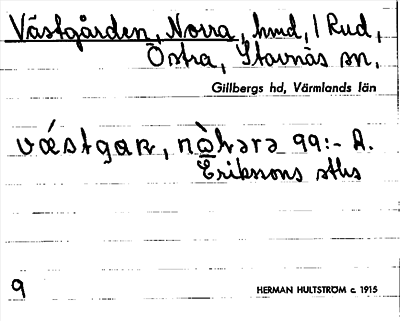 Västgården, Norra, hmd, i Rud,
Östra, Stavnäs sn,
Gillbergs hd, Värmlands län
væ̀stgaʀ, nò̲rara 99:- A.
Erikssons sths
9
HERMAN HULTSTRÖM c. 1915